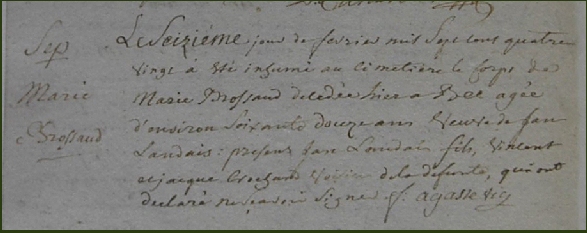 Sep
Marie
Brossaud
Le Seiziéme jour de fevrier mil Sept cent quatre
vingt à été inhumé au Cimetiere le Corps de
Marie Brossaud decedée hier a agée
d'environ Soixante douze ans Veuve de Jan
Landais: present Jan Landais fils, Vincent
et jacque Crochard Voisin de la defunte, qui ont
declaré ne sçavoir Signer f. agasse